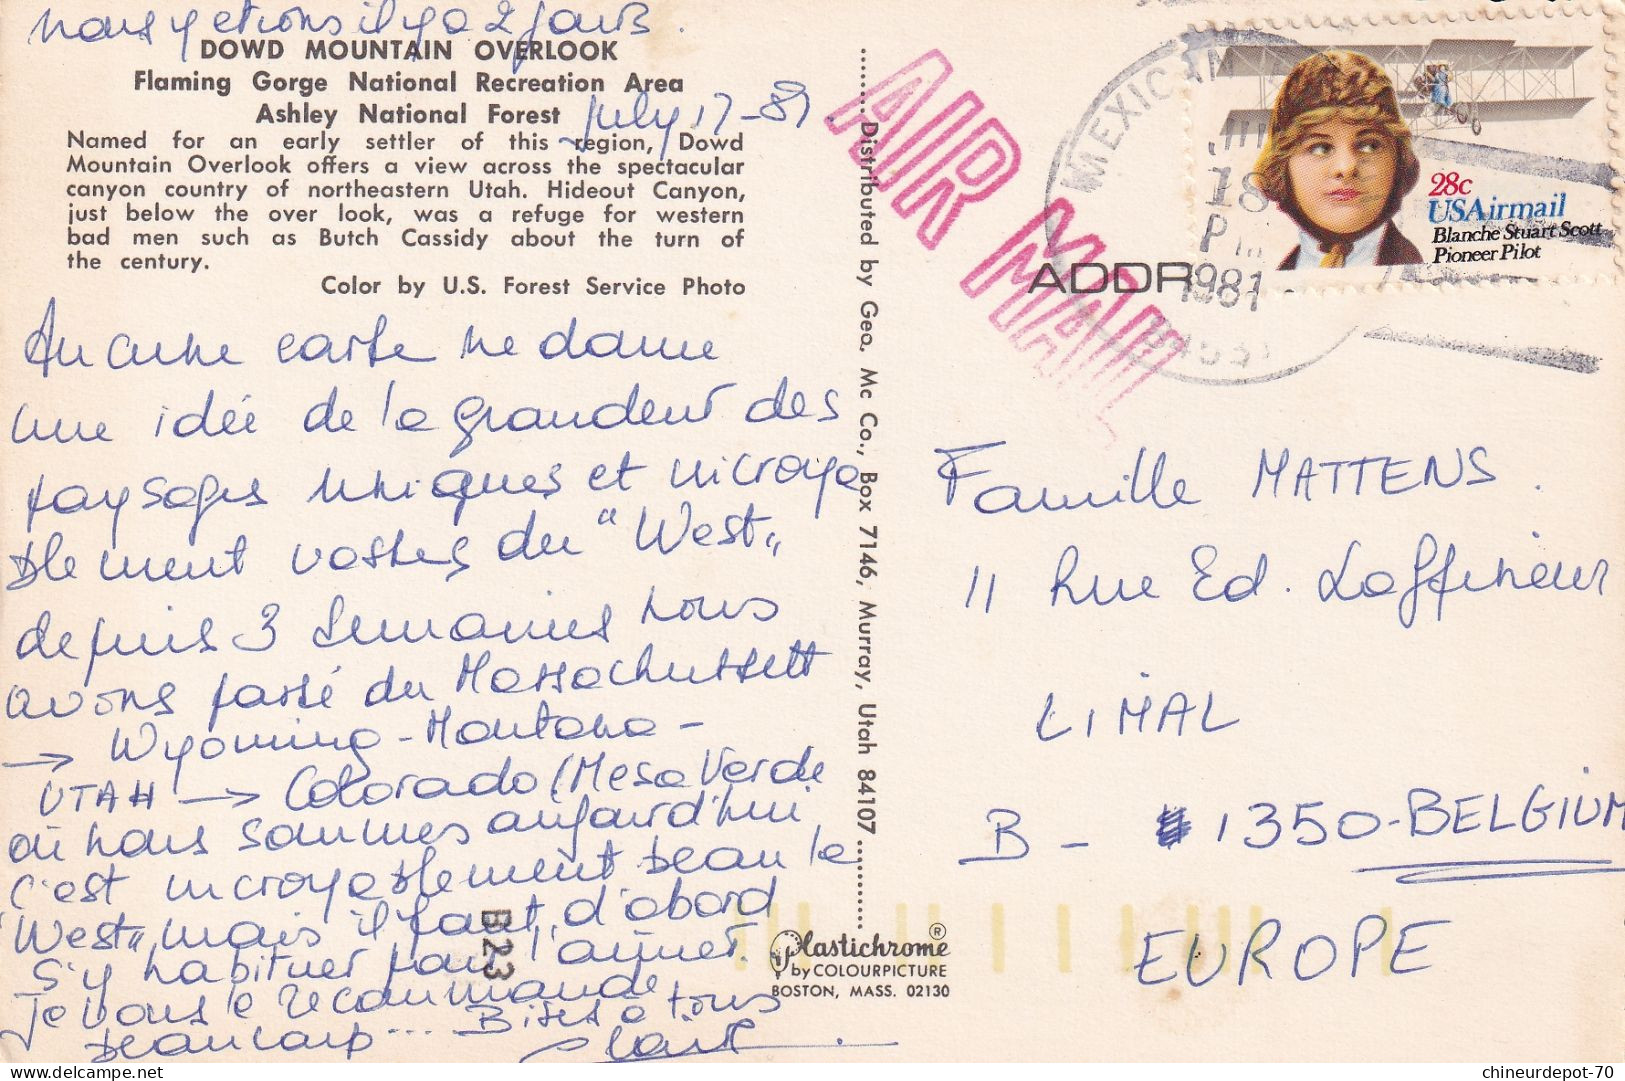 nous y etions il y a 2 jours.
DOWD MOUNTAIN OVERLOOK
Flaming Gorge National Recreation Area
Ashley National Forest
July 17-81.
Named for an early settler of this region, Dowd
Mountain Overlook offers a view across the spectacular
canyon country of northeastern Utah. Hideout Canyon,
just below the over look, was a refuge for western
bad men such as Butch Cassidy about the turn of
the century.
Color by U.S. Forest Service Photo
Aucune carte ne donne
une idée de la grandeur des
paysages uniques et incroya
blement vastes du "West"
depuis 3 semaines nous
avons passé du Massachussett
→ Wyoming - Montana -
UTAH → Colorado (Mesa Verde
où nous sommes aujourd'hui
c'est incroyablement beau le
"West" mais il faut d'abord
s'y habituer pour l'aimer.
Je vous le recommande
beaucoup ... Bises à tous
B23
Distributed by Geo. Mc Co., Box 7146, Murray, Utah 84107
Plastichrome ®
by COLOURPICTURE
BOSTON, MASS. 02130
AIR MAIL
AIR MAIL
MEXICAN
18
PM
1981
28c
USAirmail
Blanche Stuart Scott
Pioneer Pilot
ADDR
Famille MATTENS.
11 Rue Ed. Laffineur
LIMAL
B - 1350-BELGIUM
EUROPE
chineurdepot-70